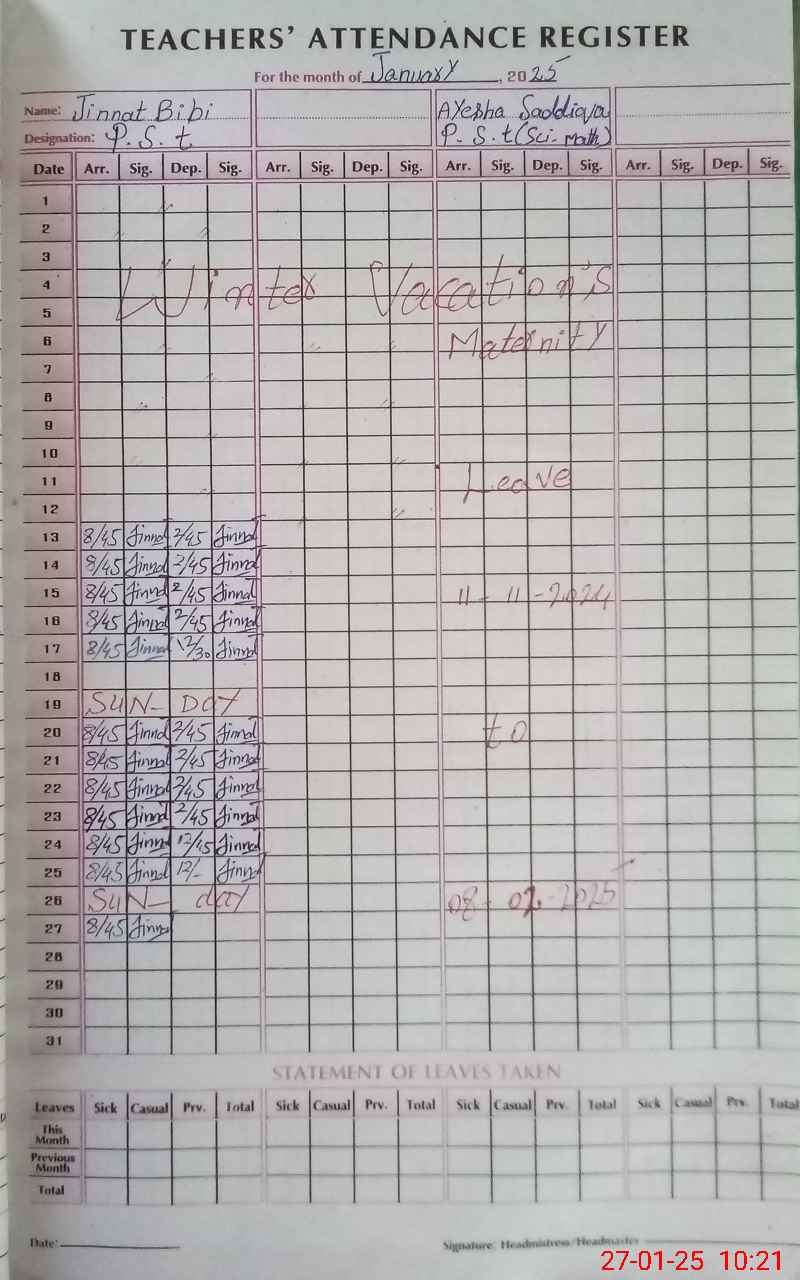 TEACHERS' ATTENDANCE REGISTER
For the month of January, 2025
Name: Jinnat Bibi Ayesha Saddiqua
Designation: P.S.t P.S.t (Sci-Math)
Date Arr. Sig. Dep. Sig. Arr. Sig. Dep. Sig. Arr. Sig. Dep. Sig. Arr. Sig. Dep. Sig.
1
2
3
4 Winter Vacation's
5
6 Maternity
7
8
9
10
11 Leave
12
13 8/45 Jinnat 2/45 Jinnat
14 8/45 Jinnat 2/45 Jinnat
15 8/45 Jinnat 2/45 Jinnat 11-11-2024
16 8/45 Jinnat 2/45 Jinnat
17 8/45 Jinnat 12/30 Jinnat
18
19 SUN-DAY
20 8/45 Jinnat 2/45 Jinnat to
21 8/45 Jinnat 2/45 Jinnat
22 8/45 Jinnat 2/45 Jinnat
23 8/45 Jinnat 2/45 Jinnat
24 8/45 Jinnat 12/15 Jinnat
25 8/45 Jinnat 12/- Jinnat
26 SUN-day 08-02-2025
27 8/45 Jinnat
28
29
30
31
STATEMENT OF LEAVES TAKEN
Leaves Sick Casual Prv. Total Sick Casual Prv. Total Sick Casual Prv. Total Sick Casual Prv. Total
This Month
Previous Month
Total
Date: Signature: Headmistress/Headmaster
27-01-25 10:21